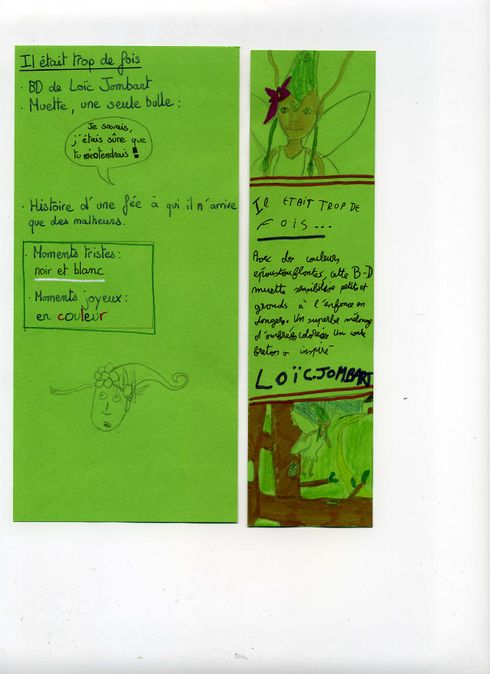 Il était trop de fois
· BD de Loïc Jombart
· Muette, une seule bulle :
Je savais,
j'étais sûre que
tu m'attendrais !
· Histoire d'une fée à qui il n'arrive
que des malheurs.
· Moments tristes :
noir et blanc
· Moments joyeux :
en couleur
IL ETAIT TROP DE
FOIS...
Avec des couleurs
époustouflantes, cette B-D
muette sensibilise petits et
grands à l'enfance en
danger. Un superbe mélange
d'ombres colorées. Un conte
breton inspiré
LOÏC.JOMBART